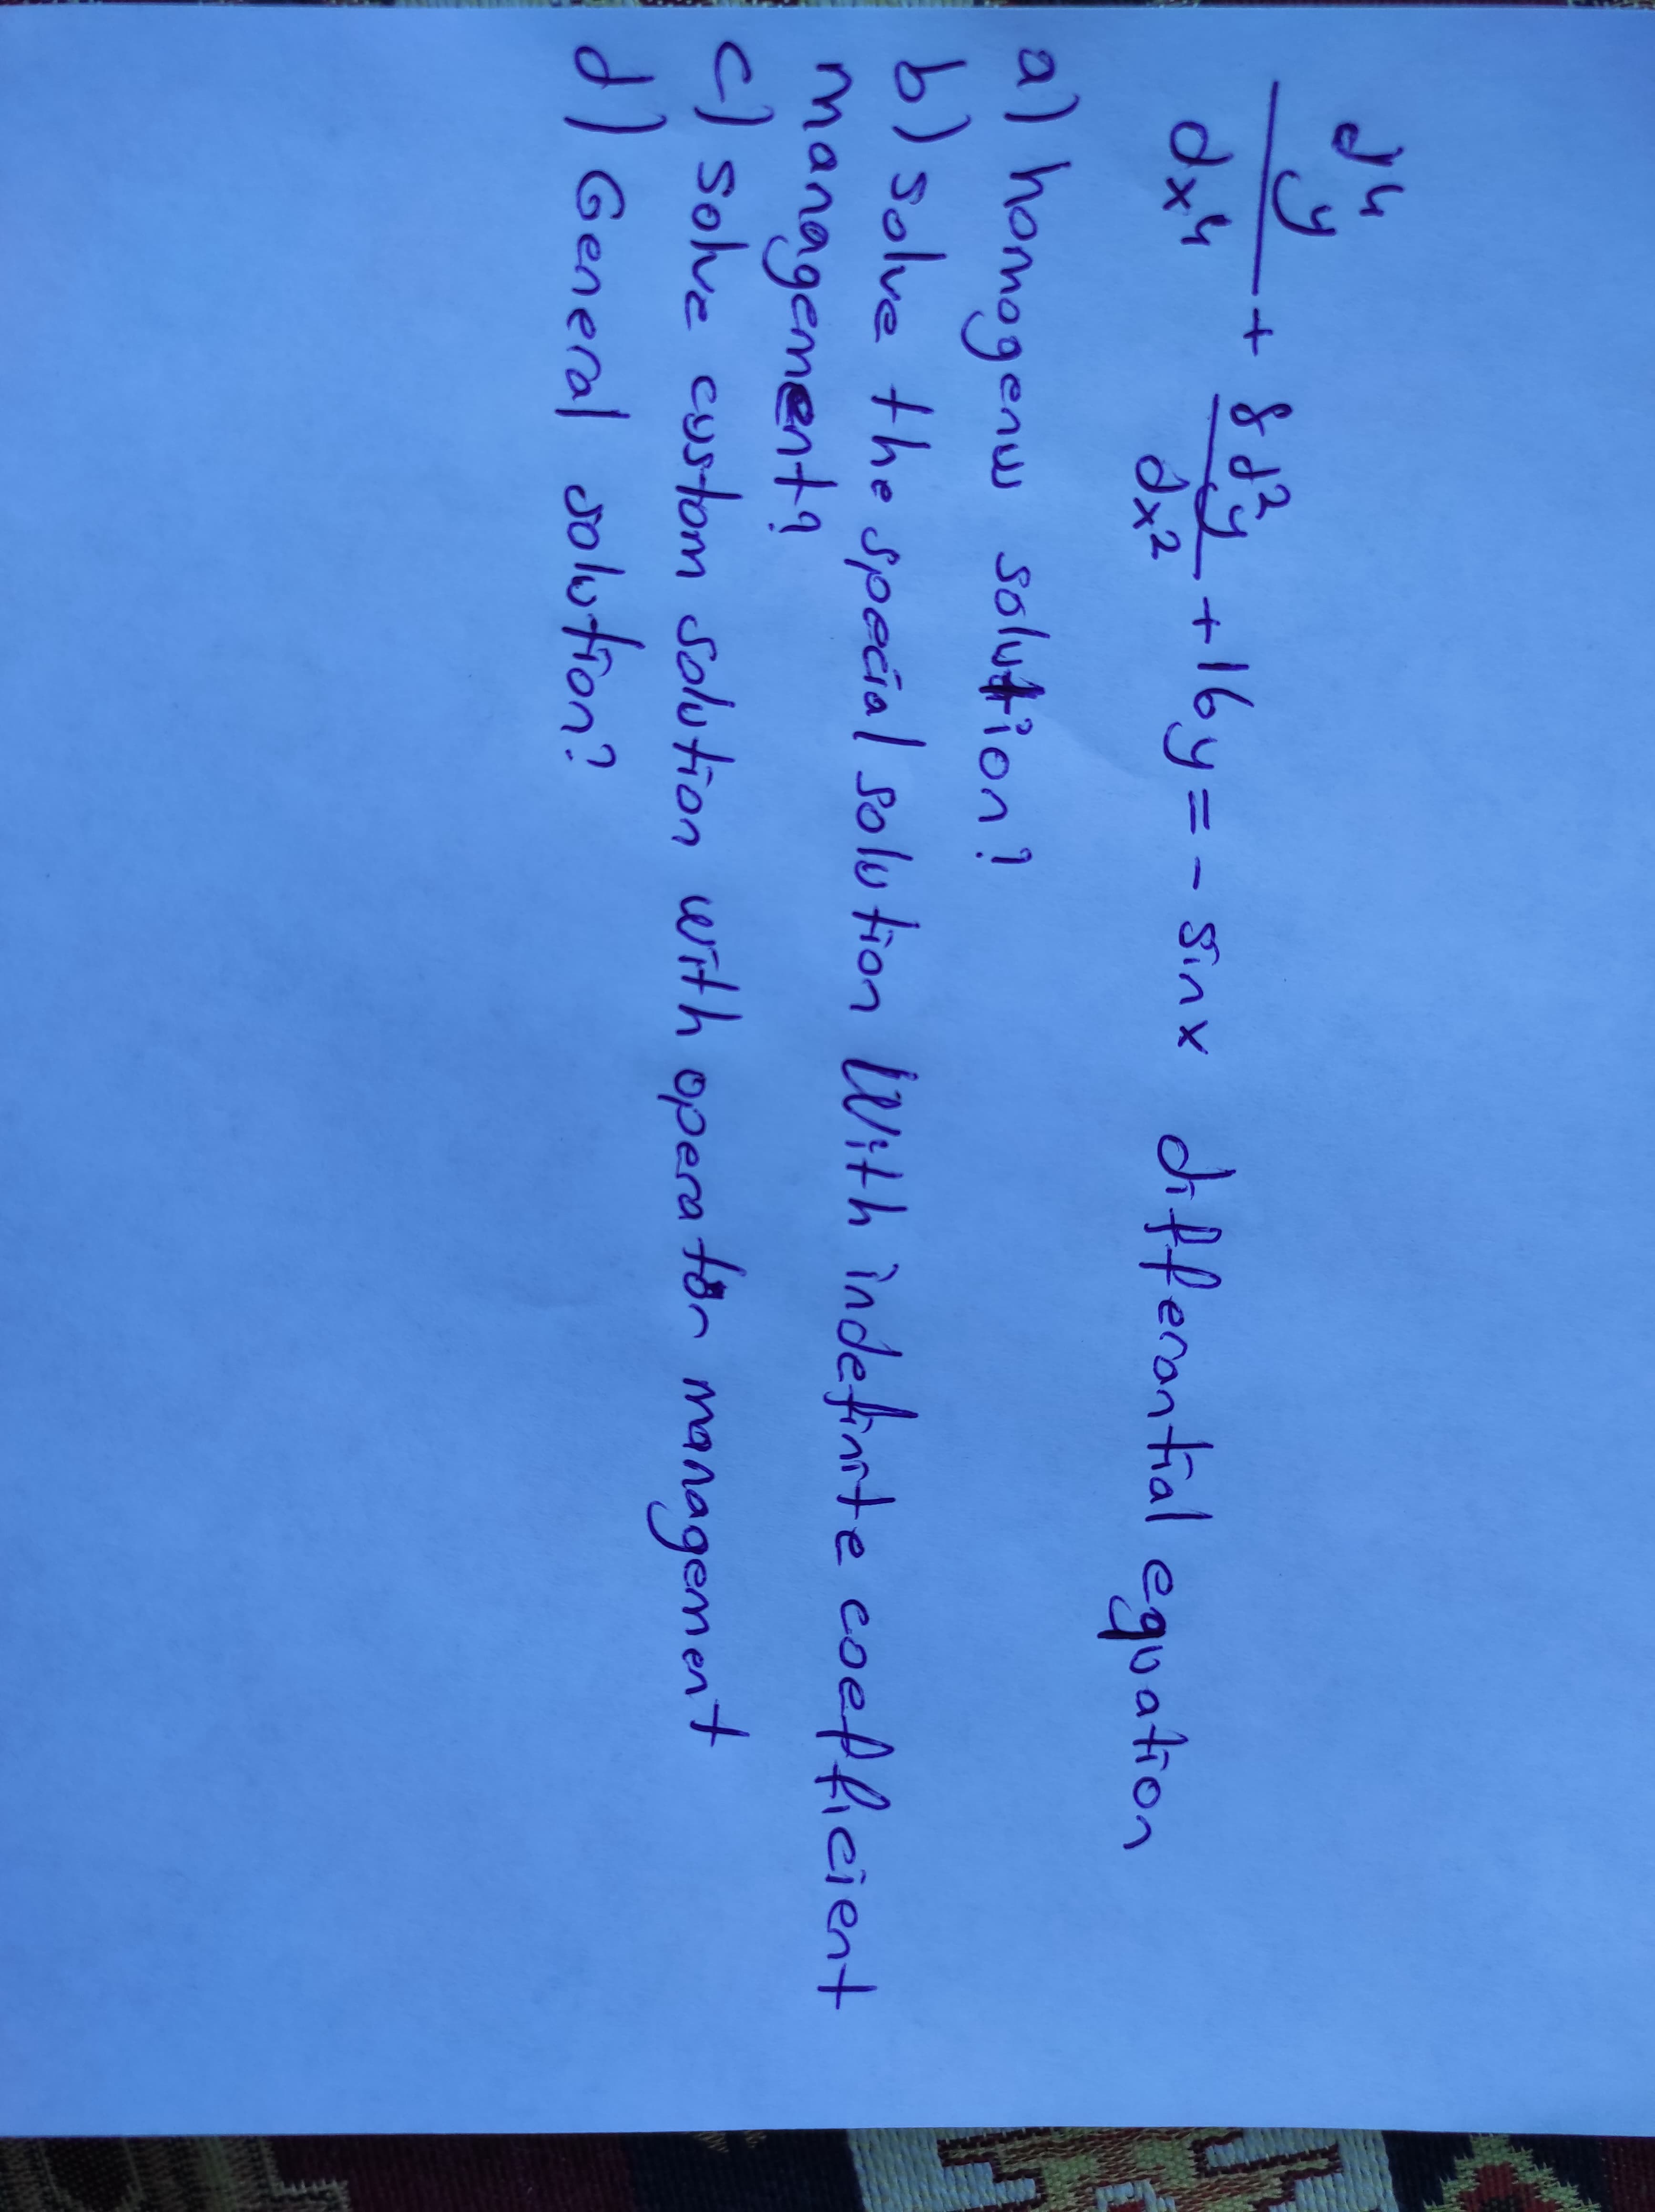 d⁴y/dx⁴ + 8d²y/dx² + 16y = - sinx differantial equation
a) homogenw solution?
b) solve the special solution With indefinite coefficient
management?
c) solve custom solution with operator management
d) General solution?